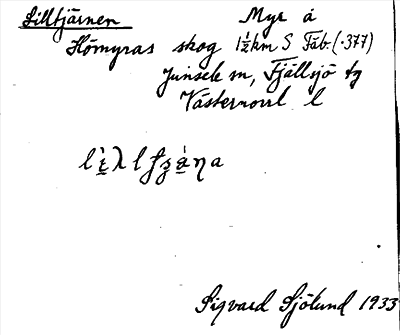 Lilltjärnen Myr å
Hömyras skog 1½ km S Fäb. (.377)
Junsele sn, Fjällsjö tg
Västernorrl l
Sigvard Sjölund 1933